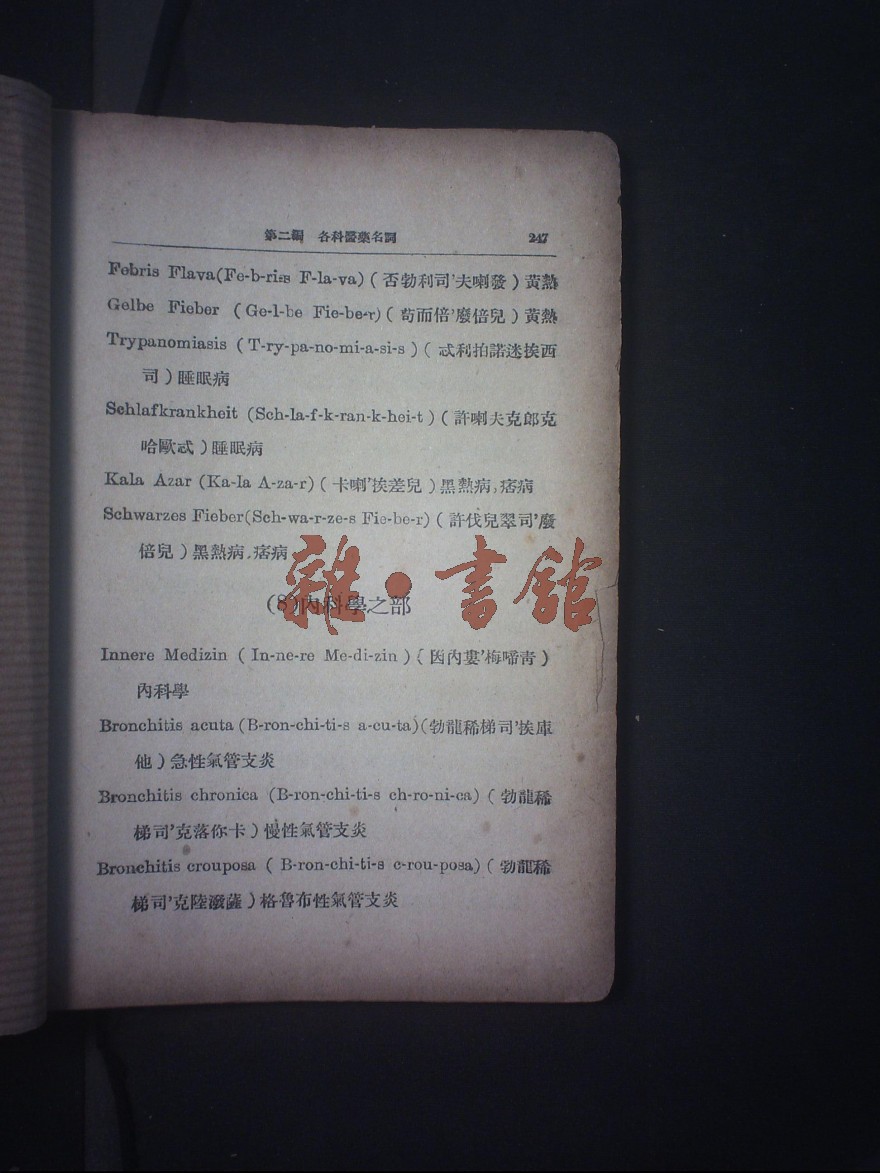 第二編 各科醫藥名詞 247
Febris Flava(Fe-b-ri-s F-la-va) ( 否勃利司'夫喇發 ) 黃熱
Gelbe Fieber ( Ge-l-be Fie-be-r) ( 苟而倍'廢倍兒 ) 黃熱
Trypanomiasis ( T-ry-pa-no-mi-a-si-s ) ( 忒利拍諾迷挨西
司 ) 睡眠病
Schlafkrankheit (Sch-la-f-k-ran-k-hei-t) ( 許喇夫克郎克
哈歐忒 ) 睡眠病
Kala Azar (Ka-la A-za-r) ( 卡喇'挨差兒 ) 黑熱病,痞病
Schwarzes Fieber(Sch-wa-r-ze-s Fie-be-r) ( 許伐兒翠司'廢
倍兒 ) 黑熱病,痞病
雜•書館
(8)內科學之部
Innere Medizin ( In-ne-re Me-di-zin ) ( 因內婁'梅啼青 )
內科學
Bronchitis acuta (B-ron-chi-ti-s a-cu-ta)(勃龍稀梯司'挨庫
他 ) 急性氣管支炎
Bronchitis chronica (B-ron-chi-ti-s ch-ro-ni-ca) ( 勃龍稀
梯司'克落你卡 ) 慢性氣管支炎
Bronchitis crouposa ( B-ron-chi-ti-s c-rou-posa) ( 勃龍稀
梯司'克陸潑薩 ) 格魯布性氣管支炎